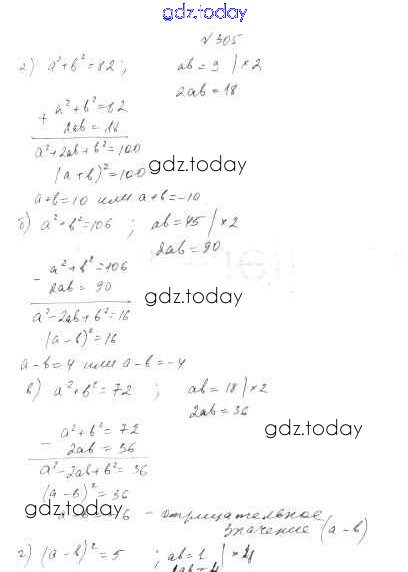 gdz.today
№305
а) a²+b²=82; ab=9 |×2
2ab=18
+ a²+b²=82
2ab=18
a²+2ab+b²=100
(a+b)²=100
gdz.today
a+b=10 или a+b=-10
б) a²+b²=106; ab=45 |×2
2ab=90
- a²+b²=106
2ab=90
gdz.today
a²-2ab+b²=16
(a-b)²=16
a-b=4 или a-b=-4
в) a²+b²=72; ab=18 |×2
2ab=36
- a²+b²=72
2ab=36
gdz.today
a²-2ab+b²=36
(a-b)²=36
gdz.today
a-b=-6 - отрицательное
значение (a-b)
г) (a-b)²=5; ab=1
2ab=4